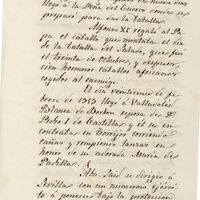 llegó a la Peña del Cuervo
preparó para dar la batalla.
Alfonso XI regaló al Pa
pa el caballo que montaba el dia
de la batalla del Salado, que fué
el treinta de Octubre, y despues,
cien hermosos caballos africanos
cogidos al enemigo.
El dia veinticinco de fe
brero de 1353 llegó a Valladolid
Blanca de Borbon esposa de D.
Pedro 1 de Castilla y el se en
contraba en Torrijos corriendo
cañas y rompiendo lanzas en
honor de su adorada Maria de
Padilla.
Abu Said se dirigió a
Sevilla con un numeroso ejérci
to a ponerse bajo la proteccion